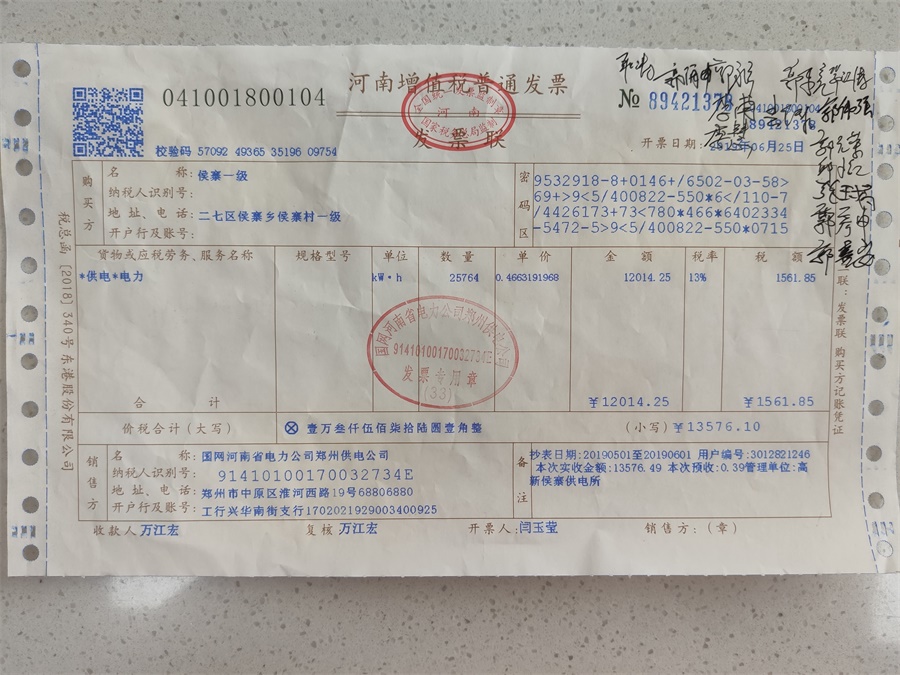 河南增值税普通发票
041001800104
发票联
№ 89421378
041001800104
89421378
校验码 57092 49365 35196 09754
开票日期: 2019年06月25日
全国统一发票监制章
河南
国家税务总局监制
购买方
名 称: 侯寨一级
纳税人识别号:
地址、电话: 二七区侯寨乡侯寨村一级
开户行及账号:
密码区
9532918-8+0146+/6502-03-58>
69+>9<5/400822-550*6</110-7
/4426173+73<780*466*6402334
-5472-5>9<5/400822-550*0715
货物或应税劳务、服务名称 规格型号 单位 数量 单价 金额 税率 税额
*供电*电力 kW·h 25764 0.4663191968 12014.25 13% 1561.85
合计 ￥12014.25 ￥1561.85
价税合计(大写) ⊗ 壹万叁仟伍佰柒拾陆圆壹角整 (小写) ￥13576.10
销售方
名 称: 国网河南省电力公司郑州供电公司
纳税人识别号: 91410100170032734E
地址、电话: 郑州市中原区淮河西路19号68806880
开户行及账号: 工行兴华南街支行1702021929003400925
备注
抄表日期:20190501至20190601 用户编号:3012821246
本次实收金额:13576.49 本次预收:0.39管理单位:高
新侯寨供电所
收款人 万江宏 复核 万江宏 开票人: 闫玉莹 销售方: (章)
国网河南省电力公司郑州供电公司
91410100170032734E
发票专用章
(33)
税总函[2018]340号东港股份有限公司
二联: 发票联 购买方记账凭证